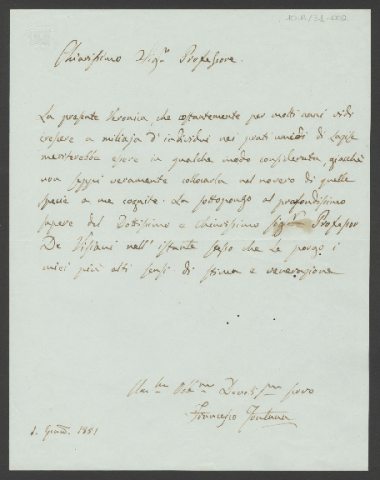 Chiarissimo Sigr Professore.
La presente Veronica, che costantemente per molti anni vidi
crescere a migliaja d'individui nei prati umidi di
meriterebbe essere in qualche modo considerata, giacchè
non seppi veramente collocarla nel novero di quelle
specie a me cognite. La sottopongo al profondissimo
sapere del Dottissimo e Chiarissimo Sigr Professor
De Visiani nell'istante stesso che Le porgo i
miei più alti sensi di stima e venerazione
Devotismo servo
Francesco Fontana
1851